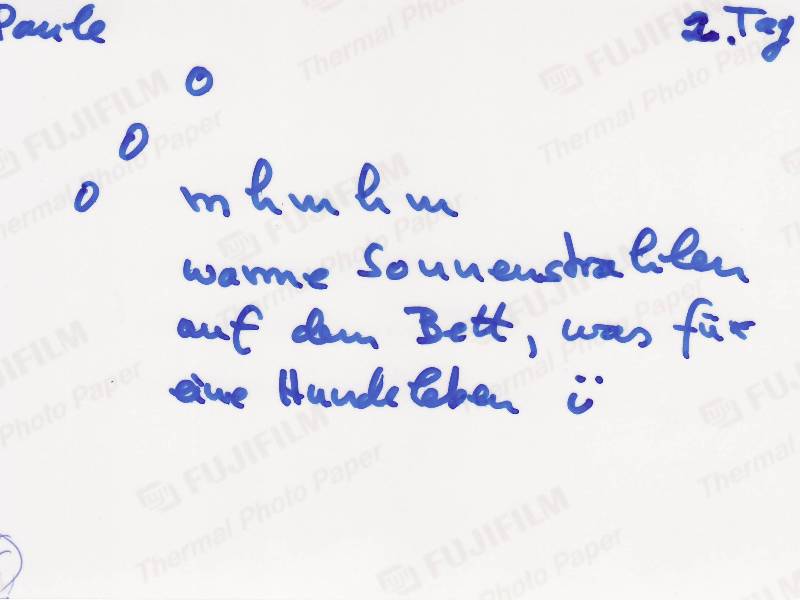 Paule 2. Tag
mhmhm
warme Sonnenstrahlen
auf dem Bett, was für
eine Hundeleben ü
FUJIFILM
Thermal Photo Paper